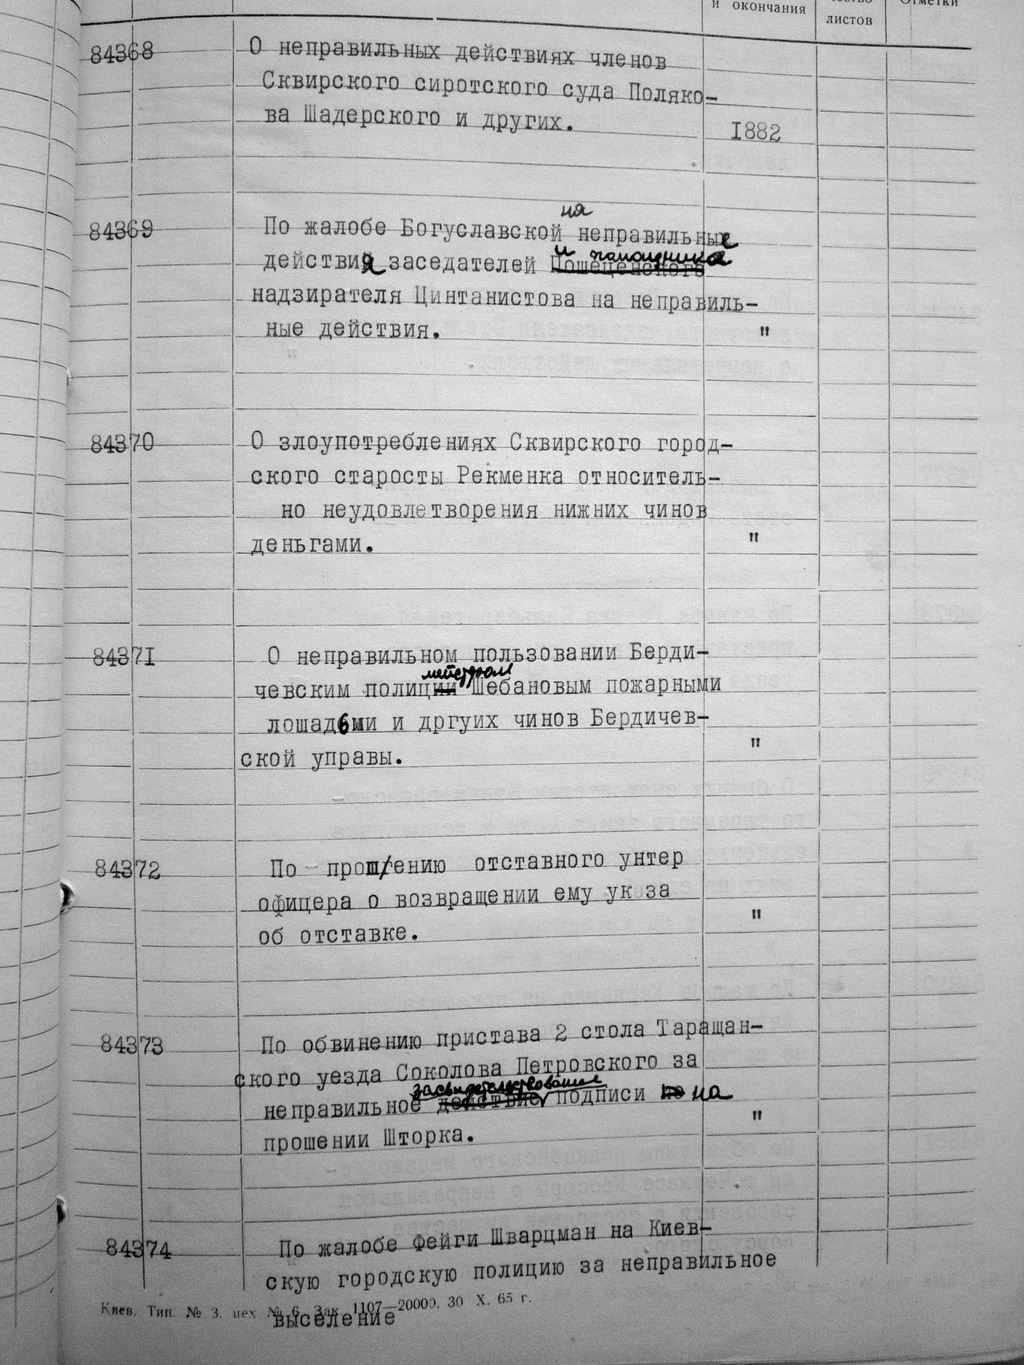 и окончания
листов
Отметки
84368
О неправильных действиях членов
Сквирского сиротского суда Поляко-
ва Шадерского и других.
1882
на
84369
По жалобе Богуславской неправильные
и помощника
действия заседателей
надзирателя Цинтанистова на неправиль-
ные действия.
"
84370
О злоупотреблениях Сквирского город-
ского старосты Рекменка относитель-
но неудовлетворения нижних чинов
деньгами.
"
84371
О неправильном пользовании Берди-
мейстром
чевским полиции Шебановым пожарными
лошадьми и дргуих чинов Бердичев-
ской управы.
"
84372
По прош/ению отставного унтер
офицера о возвращении ему ук за
об отставке.
"
84373
По обвинению пристава 2 стола Таращан-
ского уезда Соколова Петровского за
засвидетельствование
неправильное действие подписи по на
прошении Шторка.
"
84374
По жалобе Фейги Шварцман на Киев-
скую городскую полицию за неправильное
выселение
Киев. Тип. № 3. цех № 6. Зак 1107—20000. 30 X. 65 г.